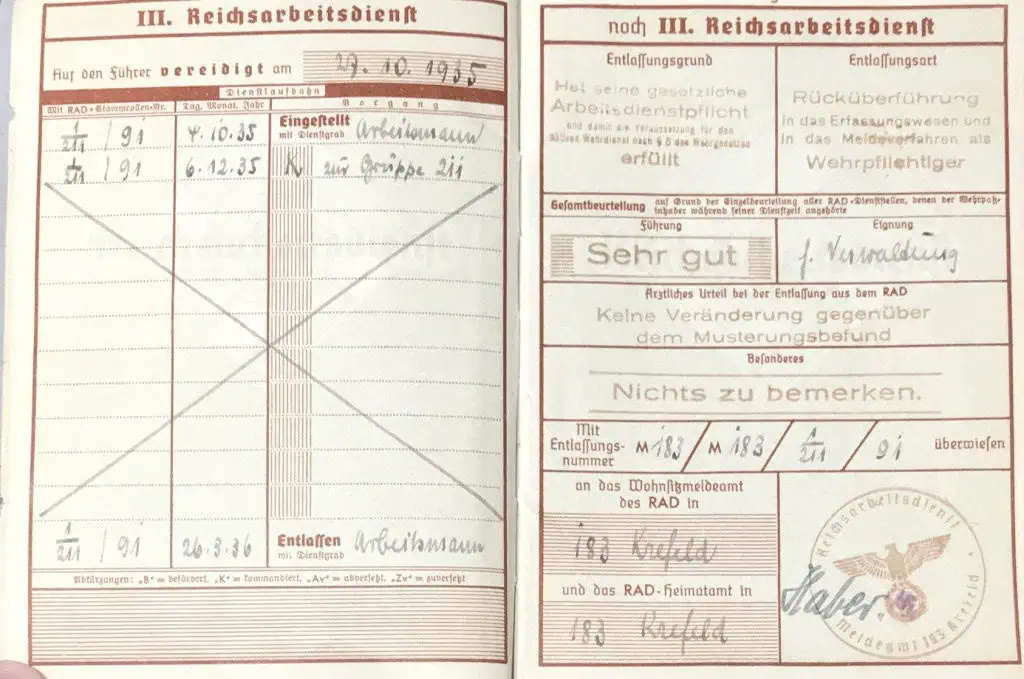 III. Reichsarbeitsdienst
Auf den Führer vereidigt am 27. 10. 1935
Dienstlaufbahn
Mit RAD-Stammrollen-Nr. Tag, Monat, Jahr Vorgang
1/211 / 91 4.10.35 Eingestellt mit Dienstgrad Arbeitsmann
1/211 / 91 6.12.35 K zur Gruppe 211
1/211 / 91 26.3.36 Entlassen mit Dienstgrad Arbeitsmann
Abkürzungen: „B“ = befördert, „K“ = kommandiert, „Av“ = abversetzt, „Zv“ = zuversetzt
noch III. Reichsarbeitsdienst
Entlassungsgrund
Hat seine gesetzliche
Arbeitsdienstpflicht
und damit die Voraussetzung für den
aktiven Wehrdienst nach § 8 des Wehrgesetzes
erfüllt
Entlassungsart
Rücküberführung
in das Erfassungswesen und
in das Meldeverfahren als
Wehrpflichtiger
Gesamtbeurteilung auf Grund der Einzelbeurteilung aller RAD-Dienststellen, denen der Wehrpaß-
inhaber während seiner Dienstzeit angehörte
Führung
Sehr gut
Eignung
f. Verwaltung
Ärztliches Urteil bei der Entlassung aus dem RAD
Keine Veränderung gegenüber
dem Musterungsbefund
Besonderes
Nichts zu bemerken.
Mit
Entlassungs-
nummer M 183 / M 183 / 1/211 / 91 überwiesen
an das Wohnsitzmeldeamt
des RAD in
183 Krefeld
und das RAD-Heimatamt in
183 Krefeld
Reichsarbeitsdienst
Meldeamt 183 Krefeld
Haber.